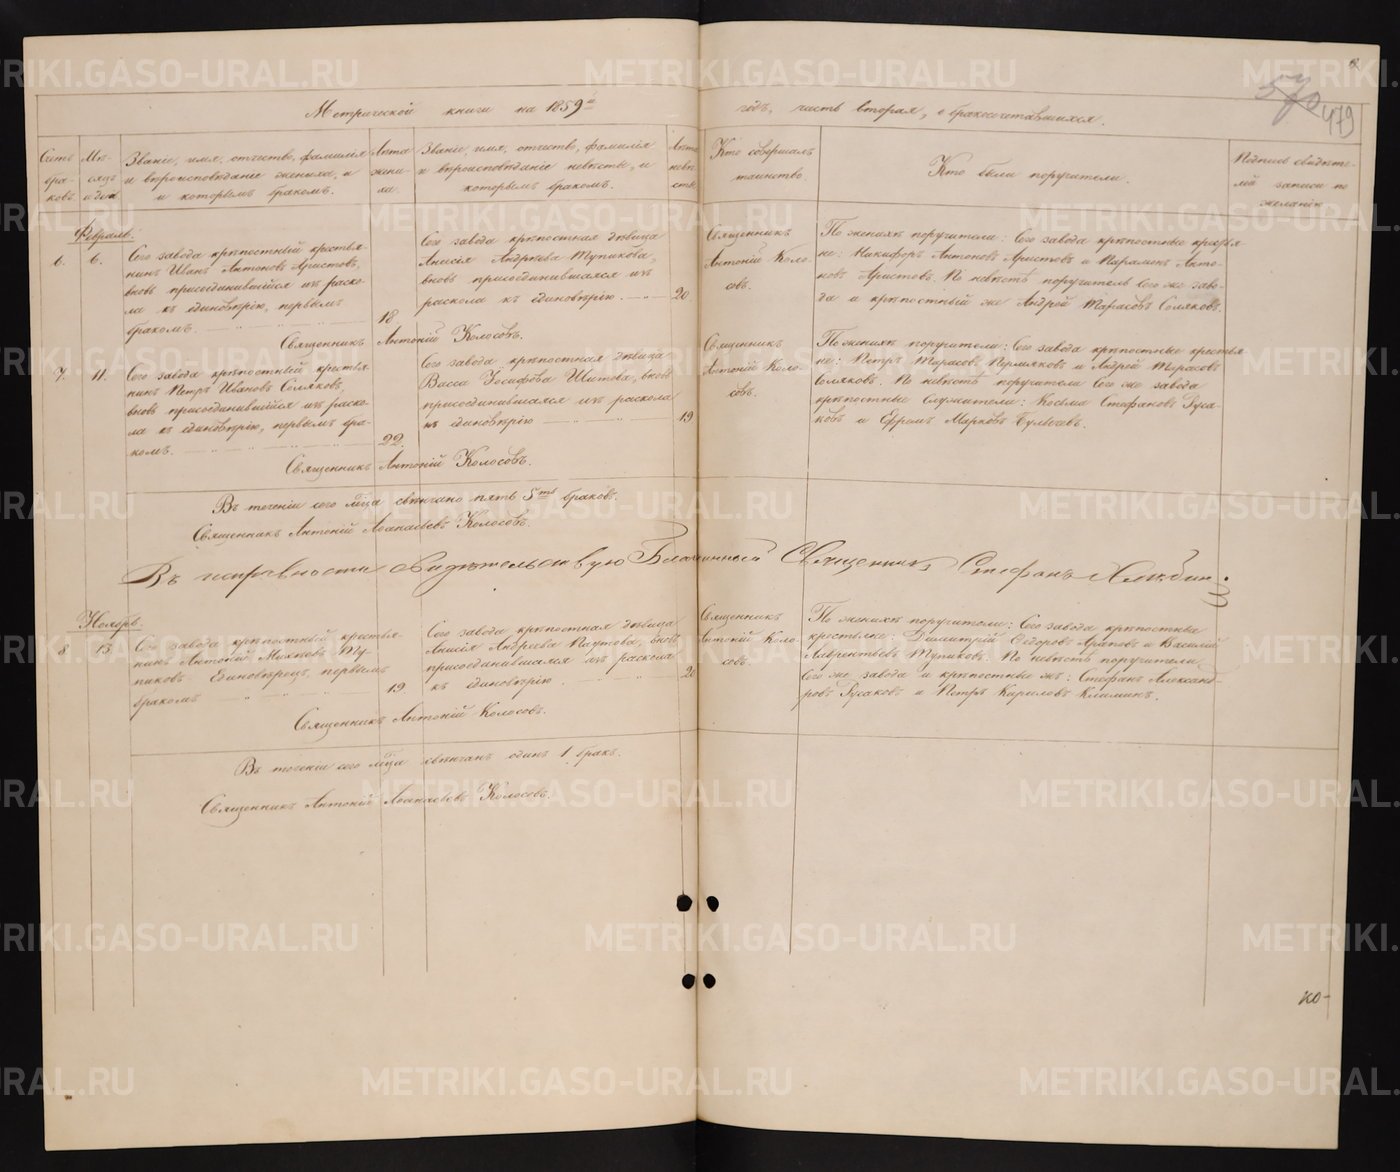 Метрической книги на 1859й
годъ, часть вторая, о бракосочетавшихся.
479
Счетъ браковъ.
Мѣсяцъ и день
Званіе, имя, отчество, фамилія
и вѣроисповѣданіе жениха, и
и которымъ бракомъ.
Лѣта
жениха.
Званіе, имя, отчество, фамилія
и вѣроисповѣданіе невѣсты, и
которымъ бракомъ.
Лѣта
невѣсты.
Кто совершалъ
таинство.
Кто были поручители.
Подпись свидѣте-
лей записи по
желанію
Февраль.
6.
6.
Сего завода крѣпостный крестья-
нинъ Иванъ Антоновъ Аристовъ,
вновь присоединившійся изъ раско-
ла къ единовѣрію, первымъ
бракомъ.
18
Сего завода крѣпостная дѣвица
Анисія Андреева Тупикова,
вновь присоединившаяся изъ
раскола къ единовѣрію.
20
Священникъ
Антоній Коло-
совъ.
По женихѣ поручители: Сего завода крѣпостные крестья-
не: Никифоръ Антоновъ Аристовъ и Парамонъ Анто-
новъ Аристовъ. По невѣстѣ поручитель Сего же заво-
да и крѣпостный же Андрей Тарасовъ Соляковъ.
Священникъ Антоній Колосовъ.
7.
11.
Сего завода крѣпостный крестья-
нинъ Петръ Ивановъ Соляковъ,
вновь присоединившійся изъ раско-
ла къ единовѣрію, первымъ бра-
комъ.
22.
Сего завода крѣпостная дѣвица
Васса Іосифова Шитова, вновь
присоединившаяся изъ раскола
къ единовѣрію
19
Священникъ
Антоній Коло-
совъ.
По женихѣ поручители: Сего завода крѣпостные крестья-
не: Петръ Тарасовъ Пермяковъ и Андрей Тарасовъ
Соляковъ. По невѣстѣ поручители Сего же завода
крѣпостные служители: Косьма Стефановъ Руса-
ковъ и Ефремъ Марковъ
Священникъ Антоній Колосовъ.
Въ теченіи сего мца свѣнчано пять 5ть браковъ.
Священникъ Антоній Аѳанасьевъ Колосовъ.
Въ исправности свидѣтельствую Благочинный Священникъ Стефанъ Хлыбинъ
Ноябрь.
8
13.
Сего завода крѣпостный крестья-
нинъ Антоній Михѣевъ Ту-
пиковъ Единовѣрецъ, первымъ
бракомъ
19
Сего завода крѣпостная дѣвица
Анисія Андреева Паутова, вновь
присоединившаяся изъ раскола
къ единовѣрію.
20
Священникъ
Антоній Коло-
совъ.
По женихѣ поручители: Сего завода крѣпостные
крестьяне: Димитрій Ѳедоровъ Араповъ и Василій
Лаврентьевъ Тупиковъ. По невѣстѣ поручители
Сего же завода и крѣпостные жъ: Стефанъ Александ-
ровъ Русаковъ и Петръ Кириловъ Климинъ.
Священникъ Антоній Колосовъ.
Въ теченіи сего мца свѣнчанъ одинъ 1 бракъ.
Священникъ Антоній Аѳанасьевъ Колосовъ.
METRIKI.GASO-URAL.RU